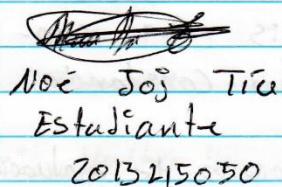 Noé Joj Ticu
Estudiante
2013215050